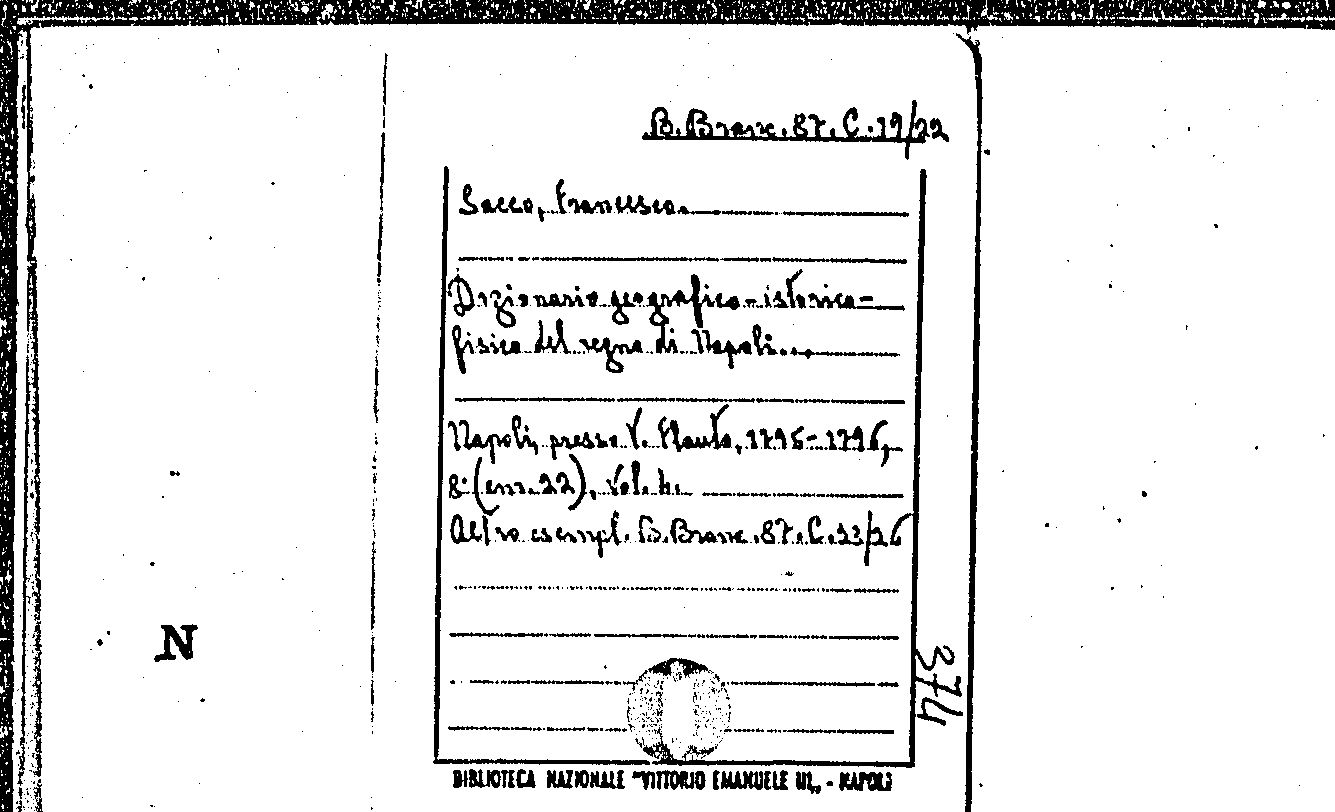 B. Branc. 87. C. 19/22
Sacco, Francesco.
Dizionario geografico-istorico-
fisico del regno di Napoli...
Napoli, presso V. Flauto, 1795-1796,
8° (cm. 22), vol. 4.
Altro esempl. B. Branc. 87. C. 23/26
374
N
BIBLIOTECA NAZIONALE "VITTORIO EMANUELE III„ - NAPOLI